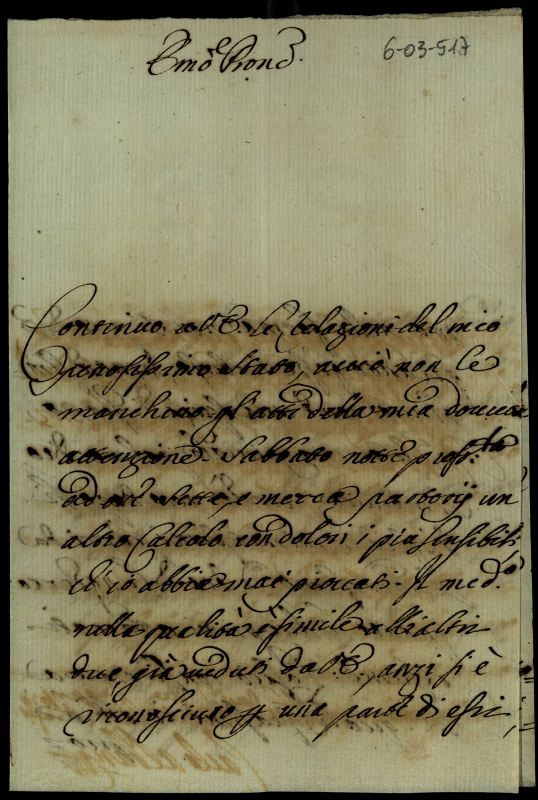 Em.^e Prone
6-03-517
Continuo a V.E. le relazioni del mio
penosissimo stato, acciò non le
manchino gl'atti della mia dovuta
attenzione. Sabbato notte pross.^ta
ad ore sette, e merca partorij un
altro calcolo con dolori i più sensibili
ch'io abbia mai provati. Il med.^o
nella qualità è simile all'altri
due già veduti da V.E., anzi si è
riconosciuto una parte di essi,